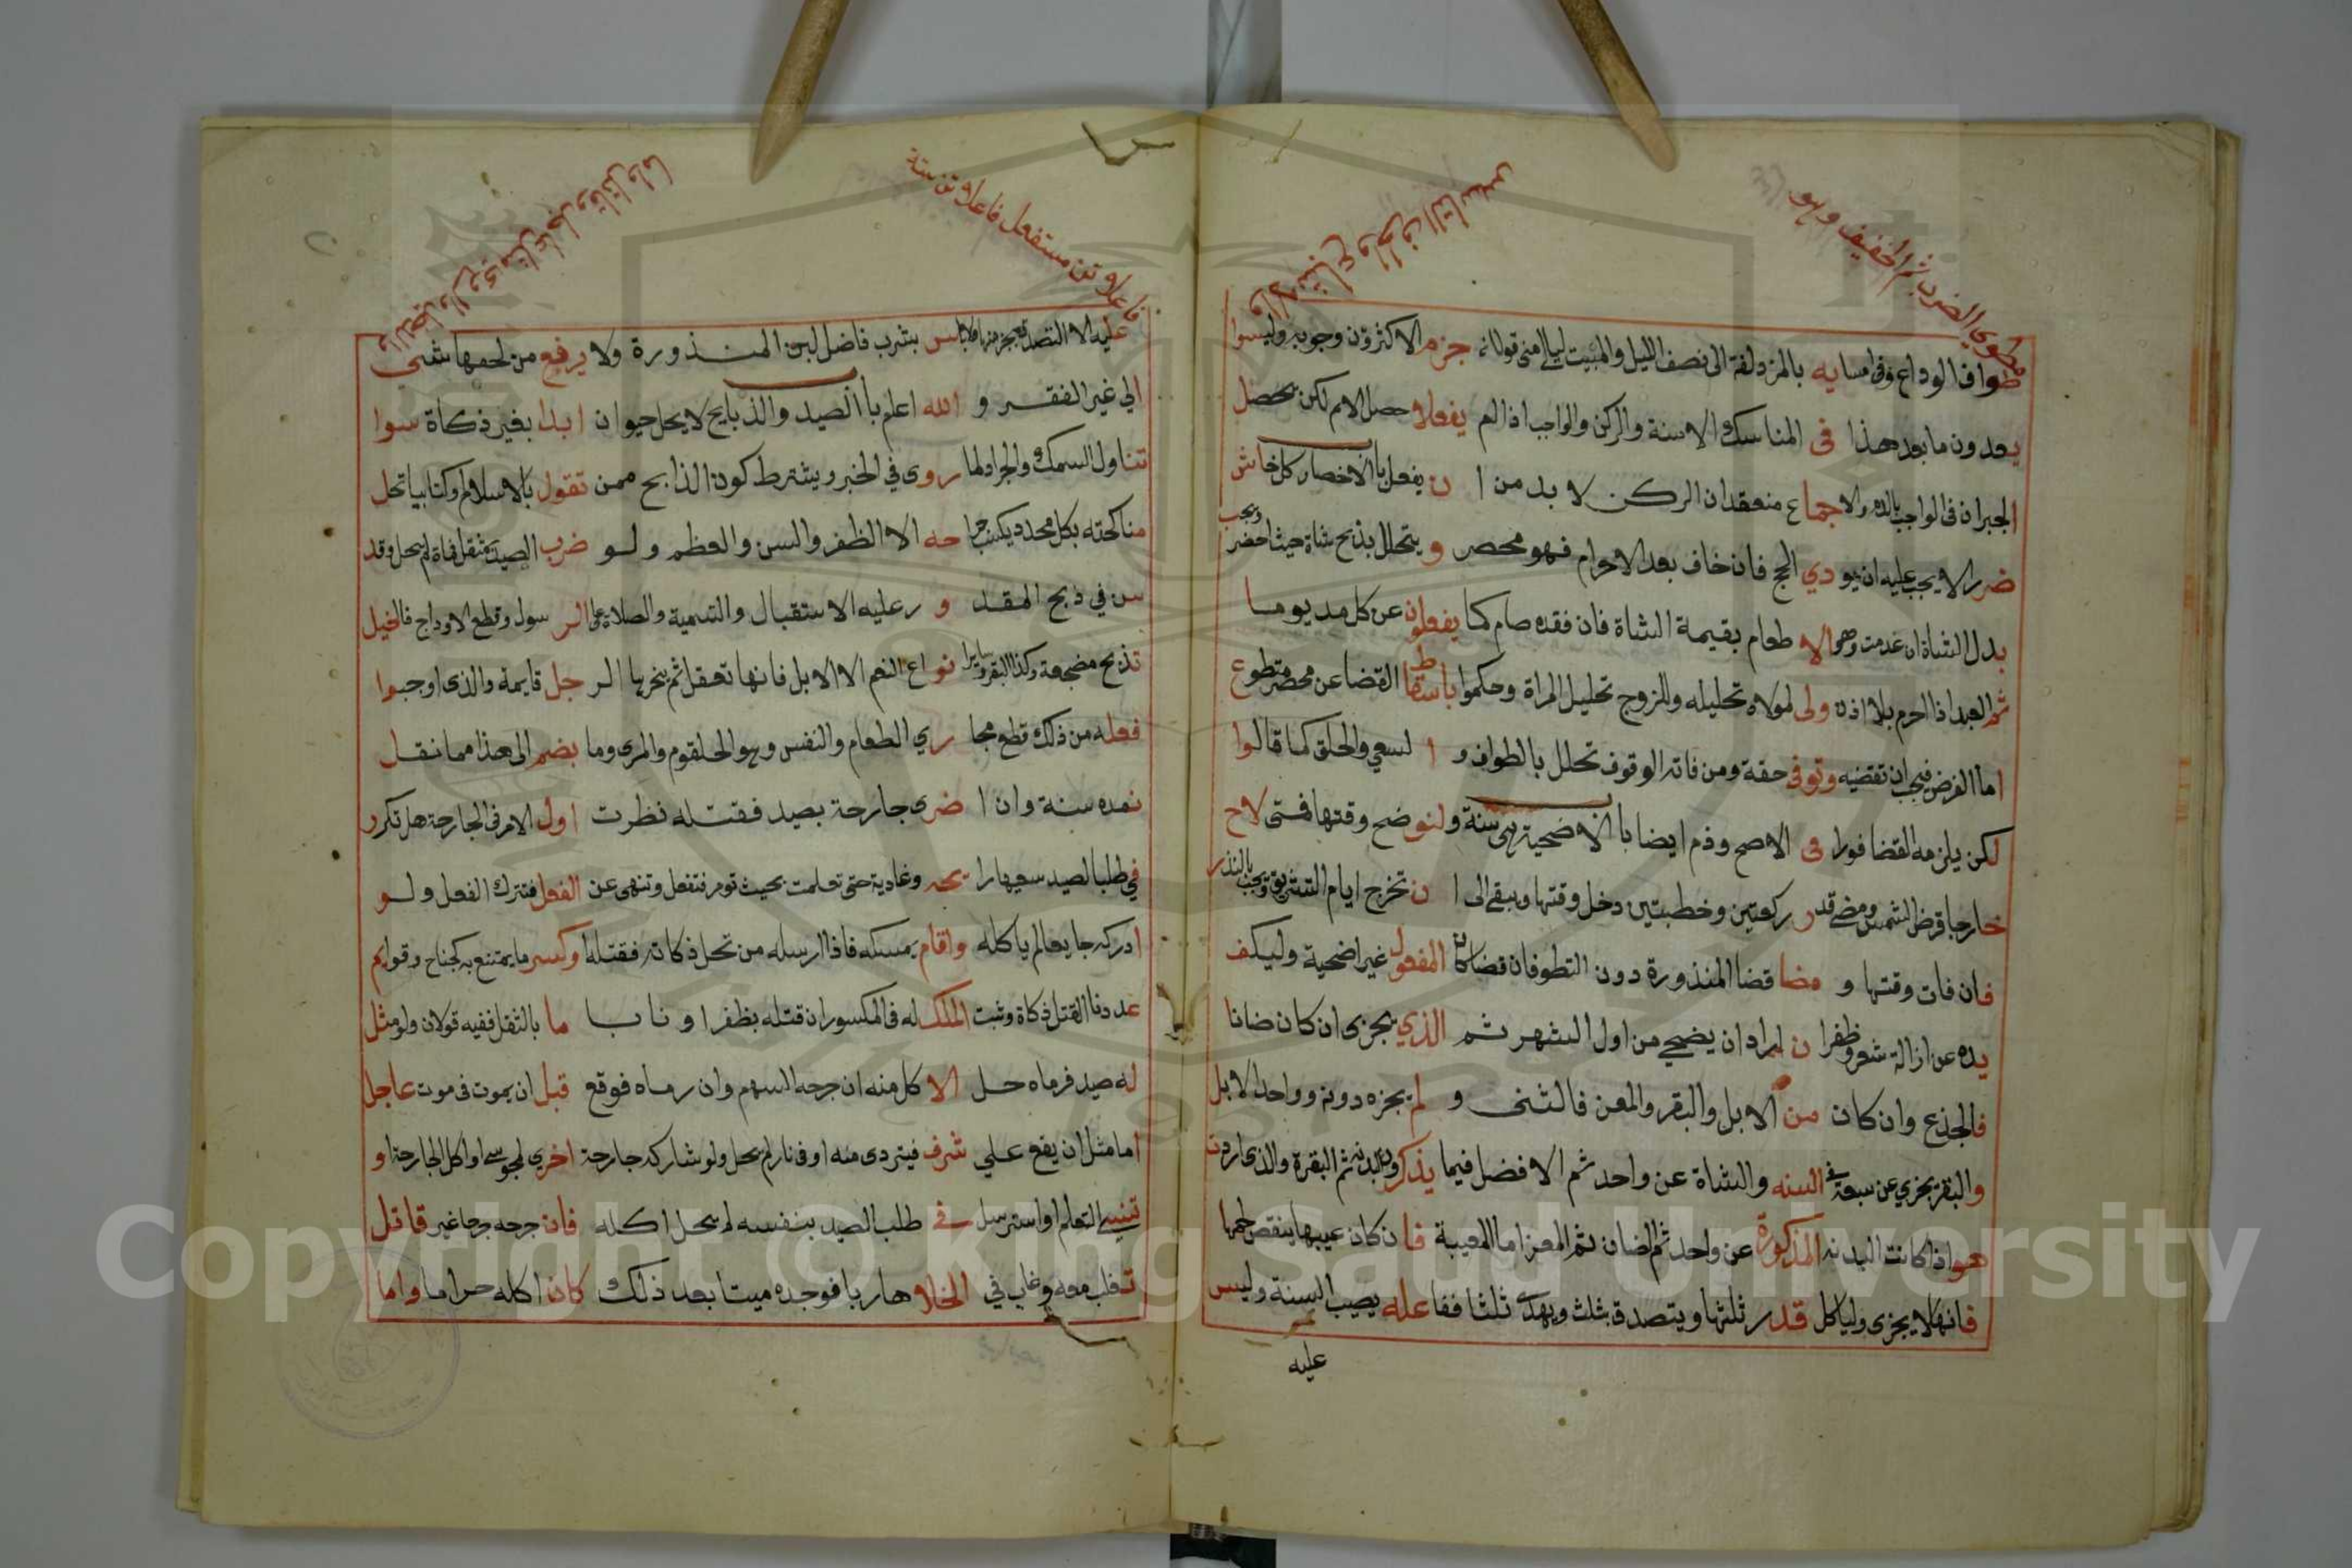 مطوي الضرب ثم الخفيف وهو
طواف الوداع وفي امسايه بالمزدلفة الى نصف الليل والمبيت ليالي منى قولان جزم الاكثرون وجوبه وليسوا
يعدون ما بعد هذا في المناسك الا سنة والركن والواجب اذا لم يفعلا حصل الاثم لكن يحصل
الجبران في الواجب بالدم والاجماع منعقد ان الركن لا بد من ا ن يفعل باب الاحصار كل خاش
ضررا لا يجب عليه ان يودي الحج فان خاف بعد الاحرام فهو محصر و يتحلل بذبح شاة حيث احضر ويجب
بدل الشاة ان عدمت وهو الا طعام بقيمة الشاة فان فقده صام كما يفعلون عن كل مد يوما
ثم العبد اذا احرم بلا اذن ولى لمولاه تحليله وللزوج تحليل المراة وحكموا باسقاط القضا عن محصر متطوع
اما الفرض فيجب ان تقضيه وتوفي حقه ومن فاته الوقوف تحلل بالطواف و ا لسعي والحلق كما قالوا
لكن يلزمه القضا فورا في الاصح ودم ايضا باب الاضحية هي سنة ولنوضح وقتها فمتى لاح
خارجا قرض الشمس ومضى قدر ركعتين وخطبتين دخل وقتها ويبقى الى ا ن تخرج ايام التشريق وتجب بالنذر
فان فات وقتها و مضا قضا المنذورة دون التطوع فان قضا كان المفعول غير اضحية وليكف
يده عن ازالة شعر وظفر ا ن اراد ان يضحي من اول الشهر ثم الذي يجزي ان كان ضانا
فالجذع وان كان من الابل والبقر والمعز فالثنى و لم يجزه دونه وواحد الابل
والبقر يجزي عن سبعة في السنه والشاة عن واحد ثم الافضل فيما يذكرون البدنه ثم البقرة والذي اردت
هو اذا كانت البدنه المذكورة عن واحد ثم الضان ثم المعز اما المعيبة فا ن كان عيبها ينقص لحمها
فانها لا يجزي ولياكل قدر ثلثها ويتصدق بثلث ويهدي ثلثا ففاعله يصيب السنة وليس
عليه
فاعلاتن مستفعل فاعلاتن ستة
عليه الا التصدق بجزء منها ولا باس بشرب فاضل لبن المنذورة ولا يرفع من لحمها شي
الي غير الفقر و الله اعلم باب الصيد والذبايح لا يحل حيوان ابدا بغير ذكاة سوا
تناول السمك والجراد لما روى في الخبر ويشترط كون الذابح ممن تقول بالاسلام او كتابيا تحل
مناكحته بكل محدد يكسب جراحه الا الظفر والسن والعظم ولو ضرب الصيد بمثقل فماة لم يحل وقد
سن في ذبح المقد و ر عليه الاستقبال والتسمية والصلاة على الر سول وقطع الاوداج فالخيل
تذبح مضجعة وكذا البقر وسايرا نواع النعم الا الابل فانها تعقل ثم ينحرها الر جل قايمة والذي اوجبوا
فعله من ذلك قطع مجا ري الطعام والنفس وهو الحلقوم والمرى وما يضم الى هذا مما نقل
نعده سنة وان ا ضرى جارحة بصيد فقتله نظرت اول الامر في الجارحة هل تكرر
في طلب الصيد سعيها را يحه وغادية حتى تعلمت بحيث تومر فتفعل وتنهى عن الفعل فتترك الفعل ولو
ادركه جايعا لم ياكله واقام يمسكه فاذا ارسله من تحل ذكاته فقتله او كسر ما يمتنع به كجناح وقوايم
عددنا القتل ذكاة وثبت الملك له في المكسور ان قتله بظفر او ناب اما بالثقل ففيه قولان ولو مثل
له صيد فرماه حل الا كل منه ان جرحه السهم وان رماه فوقع قبل ان يموت في موت عاجل
اما مثل ان يقع علي شرف فيتردى منه او في نار لم يحل ولو شاركه جارحة اخري لمجوسي او اكل الجارحة او
تنسي التعلم او استرسل في طلب الصيد بنفسه لم يحل اكله فان جرحه جرحا غير قاتل
تخلف معه وغاب في الخلا هاربا فوجده ميتا بعد ذلك كان اكله حراما واما
Copyright © King Saud University